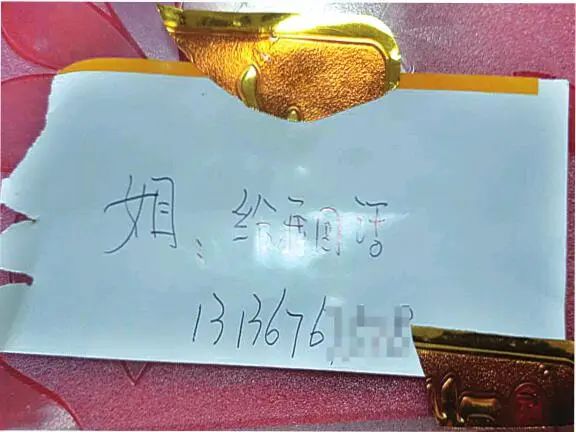 姐、给回话
1313676